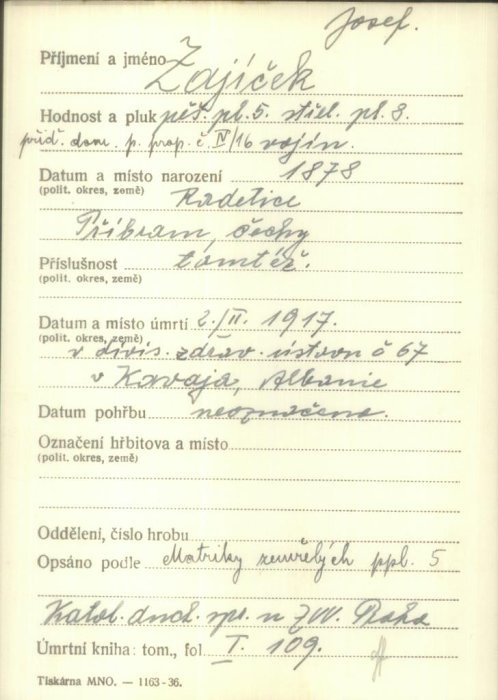 Josef.
Příjmení a jméno Zajíček
Hodnost a pluk pěš. pl. 5. střel. pl. 8.
příd. dom. p. prap. č. IV/16 vojín.
Datum a místo narození 1878
(polit. okres, země) Radetice
Příbram, čechy
Příslušnost tomtéž.
(polit. okres, země)
Datum a místo úmrtí 2./II. 1917.
(polit. okres, země)
v divis. zdrav. ústavu č 67
v Kavaja, Albanie
Datum pohřbu neoznačeno.
Označení hřbitova a místo
(polit. okres, země)
Oddělení, číslo hrobu
Opsáno podle Matriky zemřelých ppl. 5
Katol. duch. spr. u ZVV. Praha
Úmrtní kniha: tom., fol. I. 109.
Tiskárna MNO. — 1163-36.